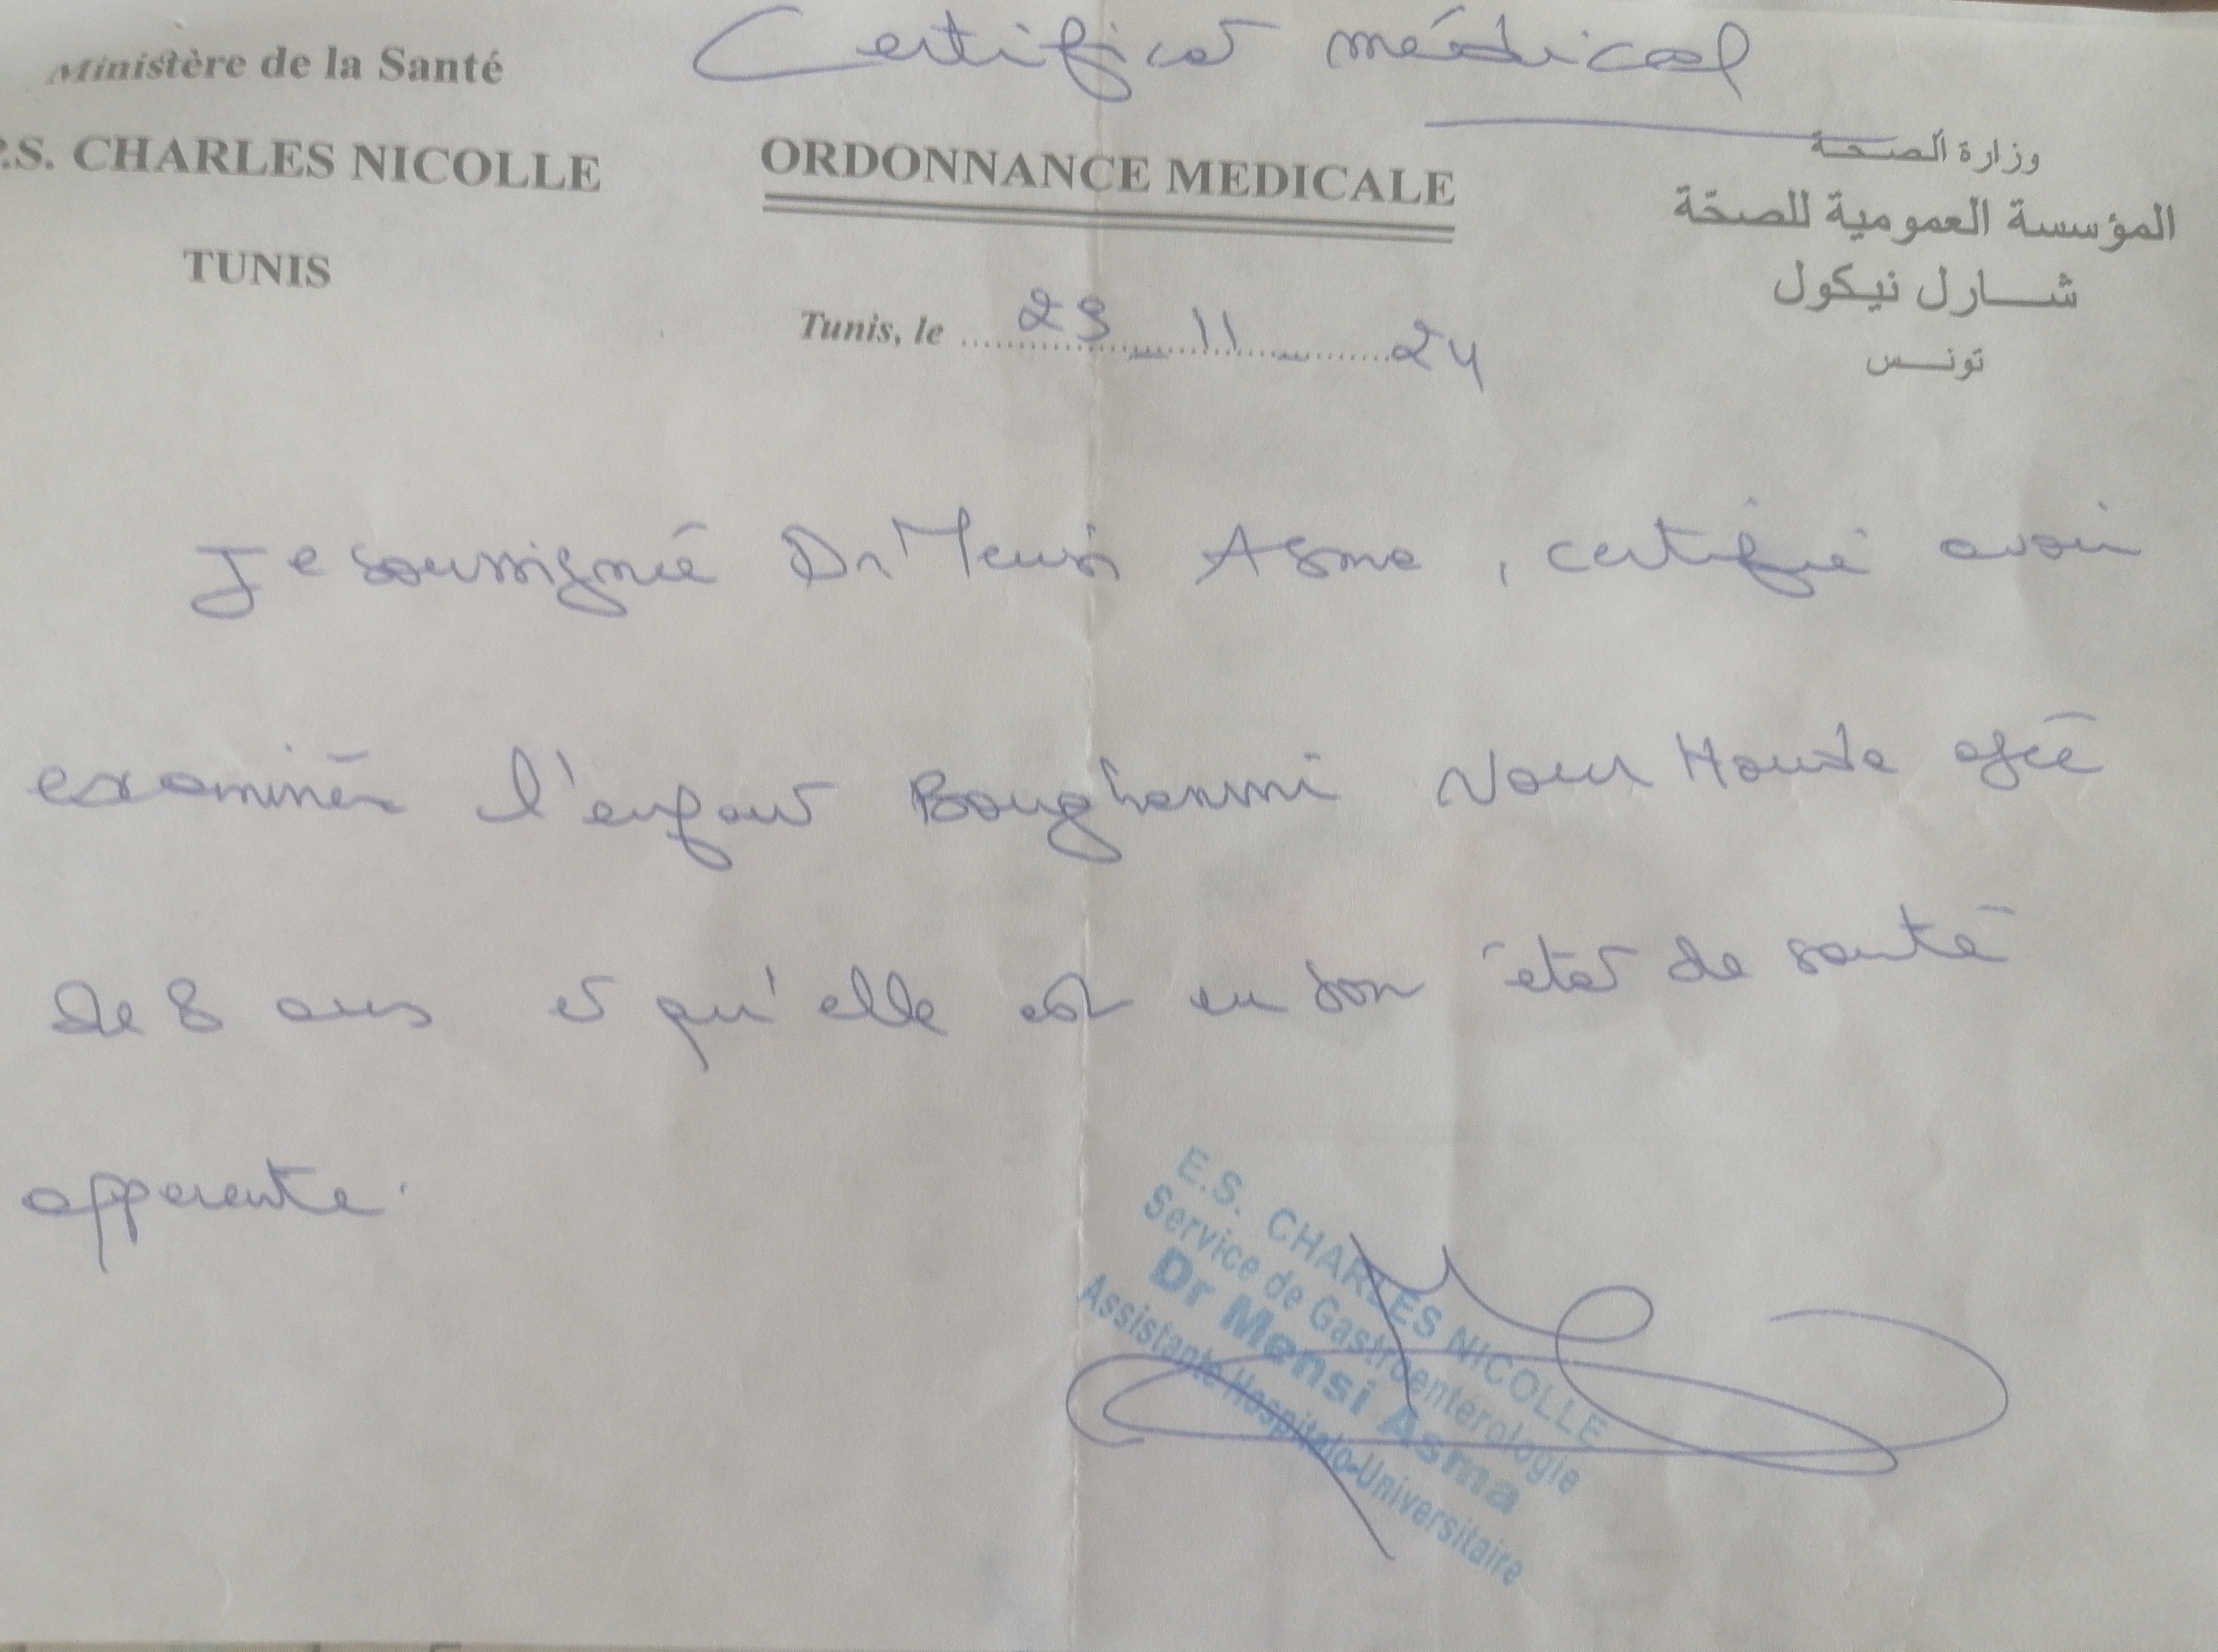 Certificat médical
Ministère de la Santé
.S. CHARLES NICOLLE
TUNIS
ORDONNANCE MEDICALE
Tunis, le 29 _ 11 _ 24
وزارة الصحة
المؤسسة العمومية للصحّة
شارل نيكول
تونس
Je soussignée Dr Mensi Asma, certifie avoir
examiner l'enfant Boughanmi Nour Houda agée
de 8 ans et qu'elle est en bon état de santé
apparente.
E.S. CHARLES NICOLLE
Service de Gastroentérologie
Dr Mensi Asma
Assistante Hospitalo-Universitaire